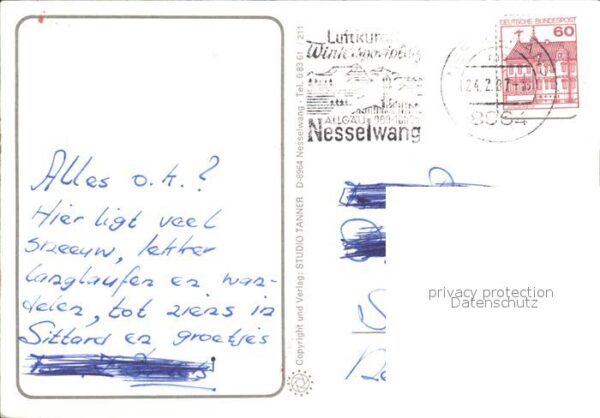 Alles o.k.?
Hier ligt veel
sneeuw, lekker
langlaufen en wan-
delen, tot ziens in
Sittard en groetjes
Copyright und Verlag: STUDIO TANNER D-8964 Nesselwang - Tel. 0 83 61 / 211
Luftkurort
Wintersportplatz
ALLGÄU 900-1600m
Nesselwang
24.2.87
8964
DEUTSCHE BUNDESPOST
60
privacy protection
Datenschutz